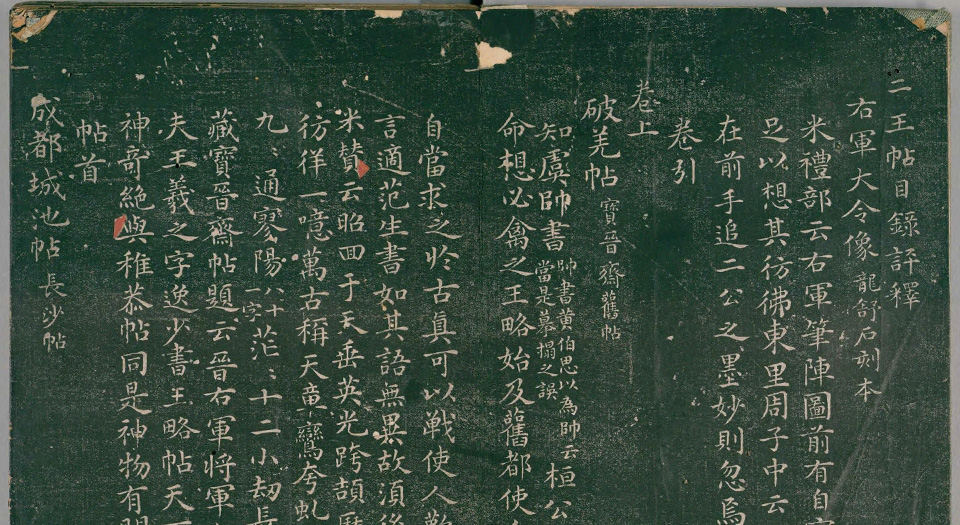 二王帖目錄評釋
右軍大令像 龍舒石刻本
米禮部云右軍筆陣圖前有自
足以想其彷彿東里周子中云
在前手追二公之墨妙則忽焉
卷引
卷上
破羌帖 寶晉齋舊帖
知虞帥書 帥書黄伯思以為帥云當是摹搨之誤 桓公
命想必禽之王略始及舊都使
自當求之於古真可以戰使人歎
言適范生書如其語無異故須後
米贊云昭回于天垂英光跨頡
彷徉一噫萬古稱天章鸞夸虬
九〻通寥陽 八十一字 茫〻十二小劫長
藏寶晉齋帖題云晉右軍將軍
夫王羲之字逸少書王略帖天
神奇絶與稚恭帖同是神物有
帖首
成都城池帖 長沙帖